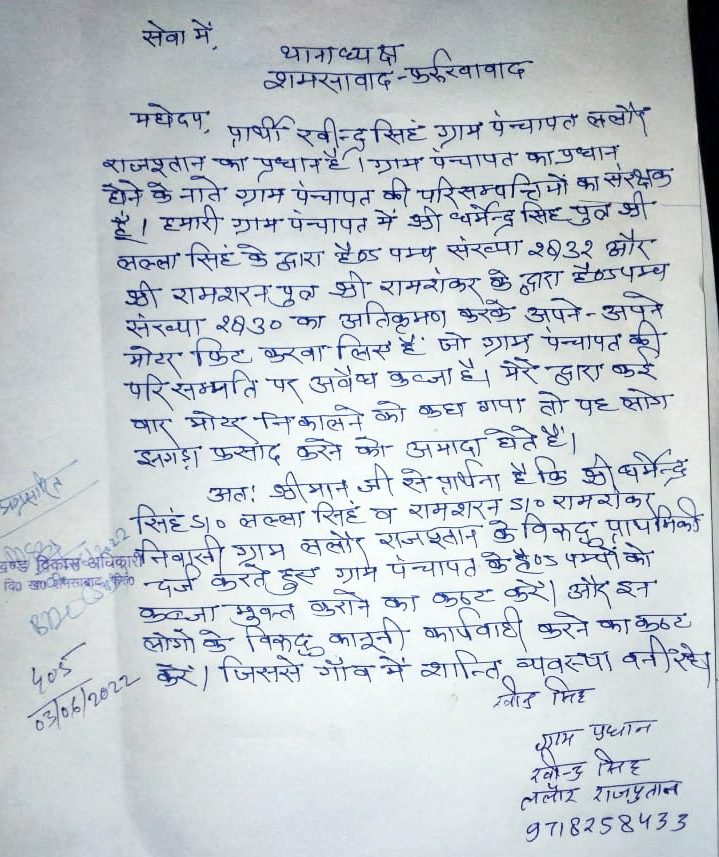 सेवा में,
थानाध्यक्ष
शमसावाद-फर्रुखावाद
महोदय,
प्रार्थी रवीन्द्र सिहं ग्राम पंन्चायत ललौर
राजश्तान का प्रधान है। ग्राम पंन्चायत का प्रधान
होने के नाते ग्राम पंन्चायत की परिसम्पत्तियों का संरक्षक
है। हमारी ग्राम पंन्चायत में श्री धर्मेन्द्र सिंह पुत्र श्री
लल्ला सिहं के द्वारा हैण्ड पम्प संख्या और
श्री रामशरन पुत्र श्री रामशंकर के द्वारा हैण्डपम्प
संख्या का अतिक्रमण करके अपने-अपने
मोटर फिट करवा लिए हैं जो ग्राम पंन्चायत की
परिसम्पति पर अवैध कव्जा है। मेरे द्वारा कई
वार मोटर निकालने को कहा गया तो यह लोग
झगड़ा फसाद करने को अमादा होते हैं।
अतः श्रीमान जी से प्रार्थना है कि श्री धर्मेन्द्र
सिहं S/० लल्ला सिहं व रामशरन S/० रामशंकर
निवासी ग्राम ललौर राजश्तान के विरुद्ध प्राथमिकी
दर्ज करते हुए ग्राम पंन्चायत के हैण्ड पम्पों को
कव्जा मुक्त कराने का कष्ट करें। और इन
लोगो के विरुद्ध कानूनी कार्यवाही करने का कष्ट
करें। जिससे गाँव में शान्ति व्यवस्था वनी रहे।
रवीन्द्र सिंह
ग्राम प्रधान
रवीन्द्र सिंह
ललौर राजपुतान
9718258433
खण्ड विकास अधिकारी
वि० ख० शमसाबाद
BDO
405
03/06/2022